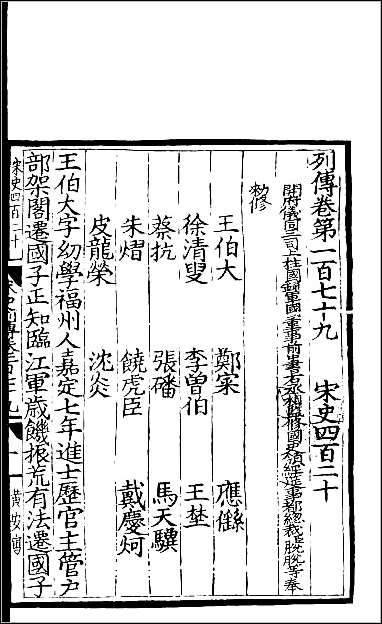 列傳卷第一百七十九　　宋史四百二十
開府儀同三司上柱國錄軍國重事前中書右丞相監修國史領經筵事都總裁脫脫等奉
敕修
王伯大　鄭寀　應𦒱
徐清叟　李曾伯　王埜
蔡抗　張磻　馬天驥
朱熠　饒虎臣　戴慶炣
皮龍榮　沈炎
王伯大字幼學福州人嘉定七年進士歷官主管戶
部架閣遷國子正知臨江軍歲饑振荒有法遷國子
宋史四百二十